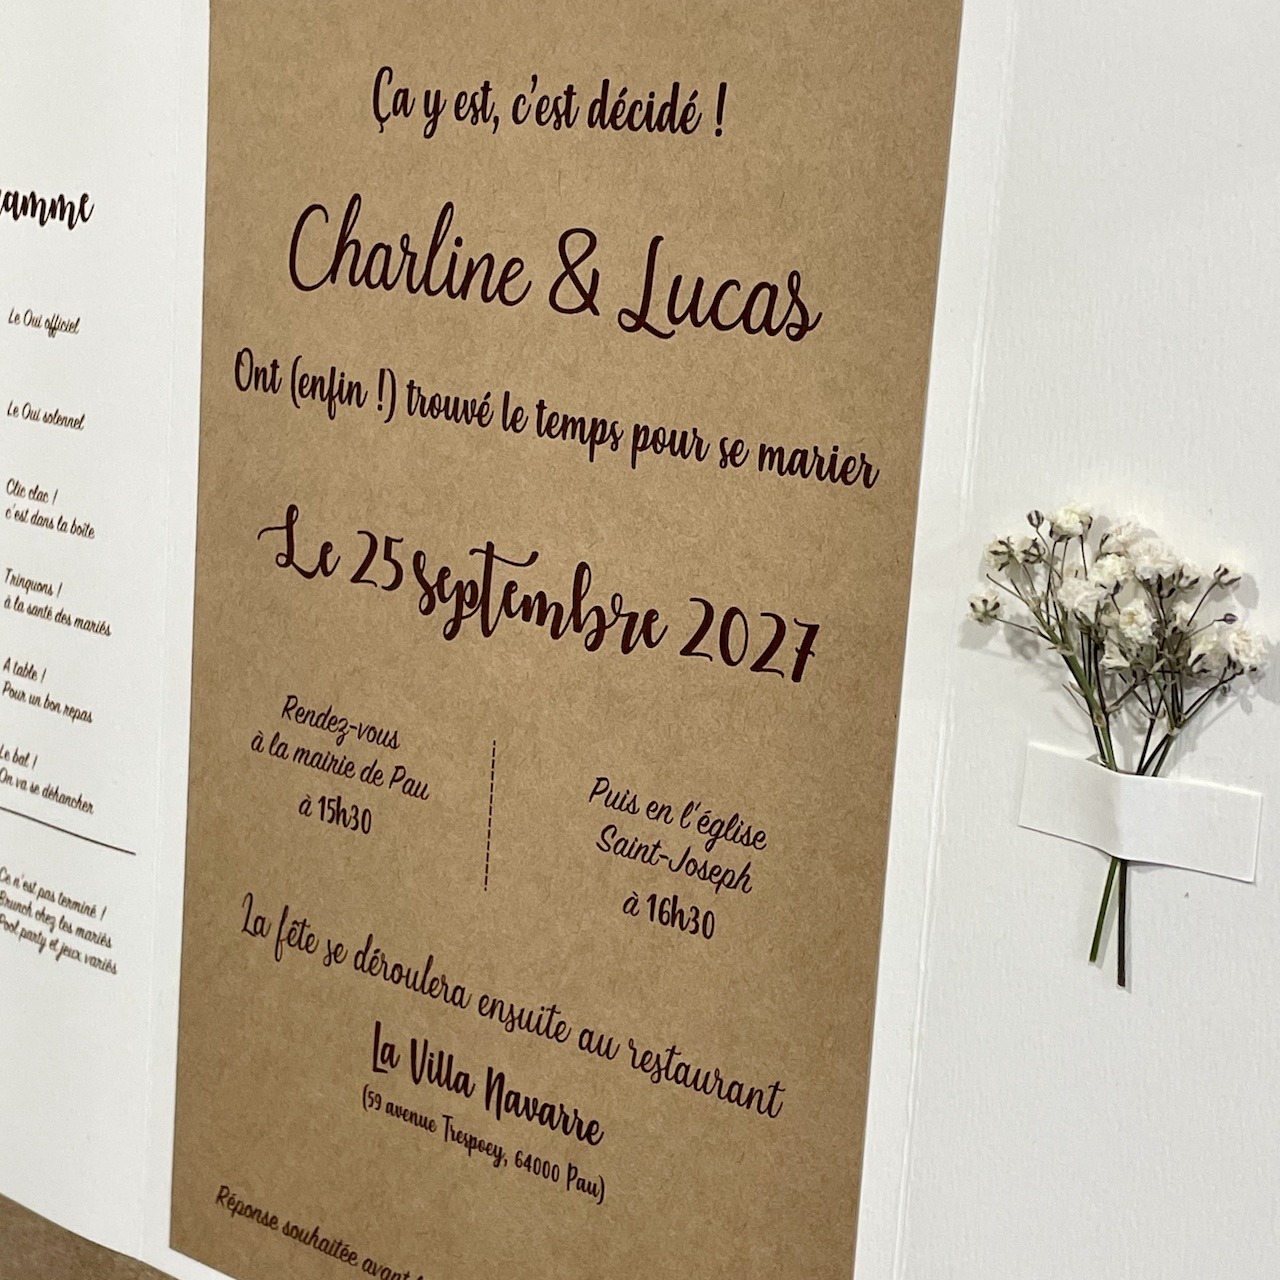 amme
Le Oui officiel
Le Oui solennel
Clic clac !
c'est dans la boîte
Trinquons !
à la santé des mariés
A table !
Pour un bon repas
Le bal !
On va se déhancher
Ce n'est pas terminé !
Brunch chez les mariés
Pool party et jeux variés
Ça y est, c'est décidé !
Charline & Lucas
Ont (enfin !) trouvé le temps pour se marier
Le 25 septembre 2027
Rendez-vous
à la mairie de Pau
à 15h30
Puis en l'église
Saint-Joseph
à 16h30
La fête se déroulera ensuite au restaurant
La Villa Navarre
(59 avenue Trespoey, 64000 Pau)
Réponse souhaitée avant